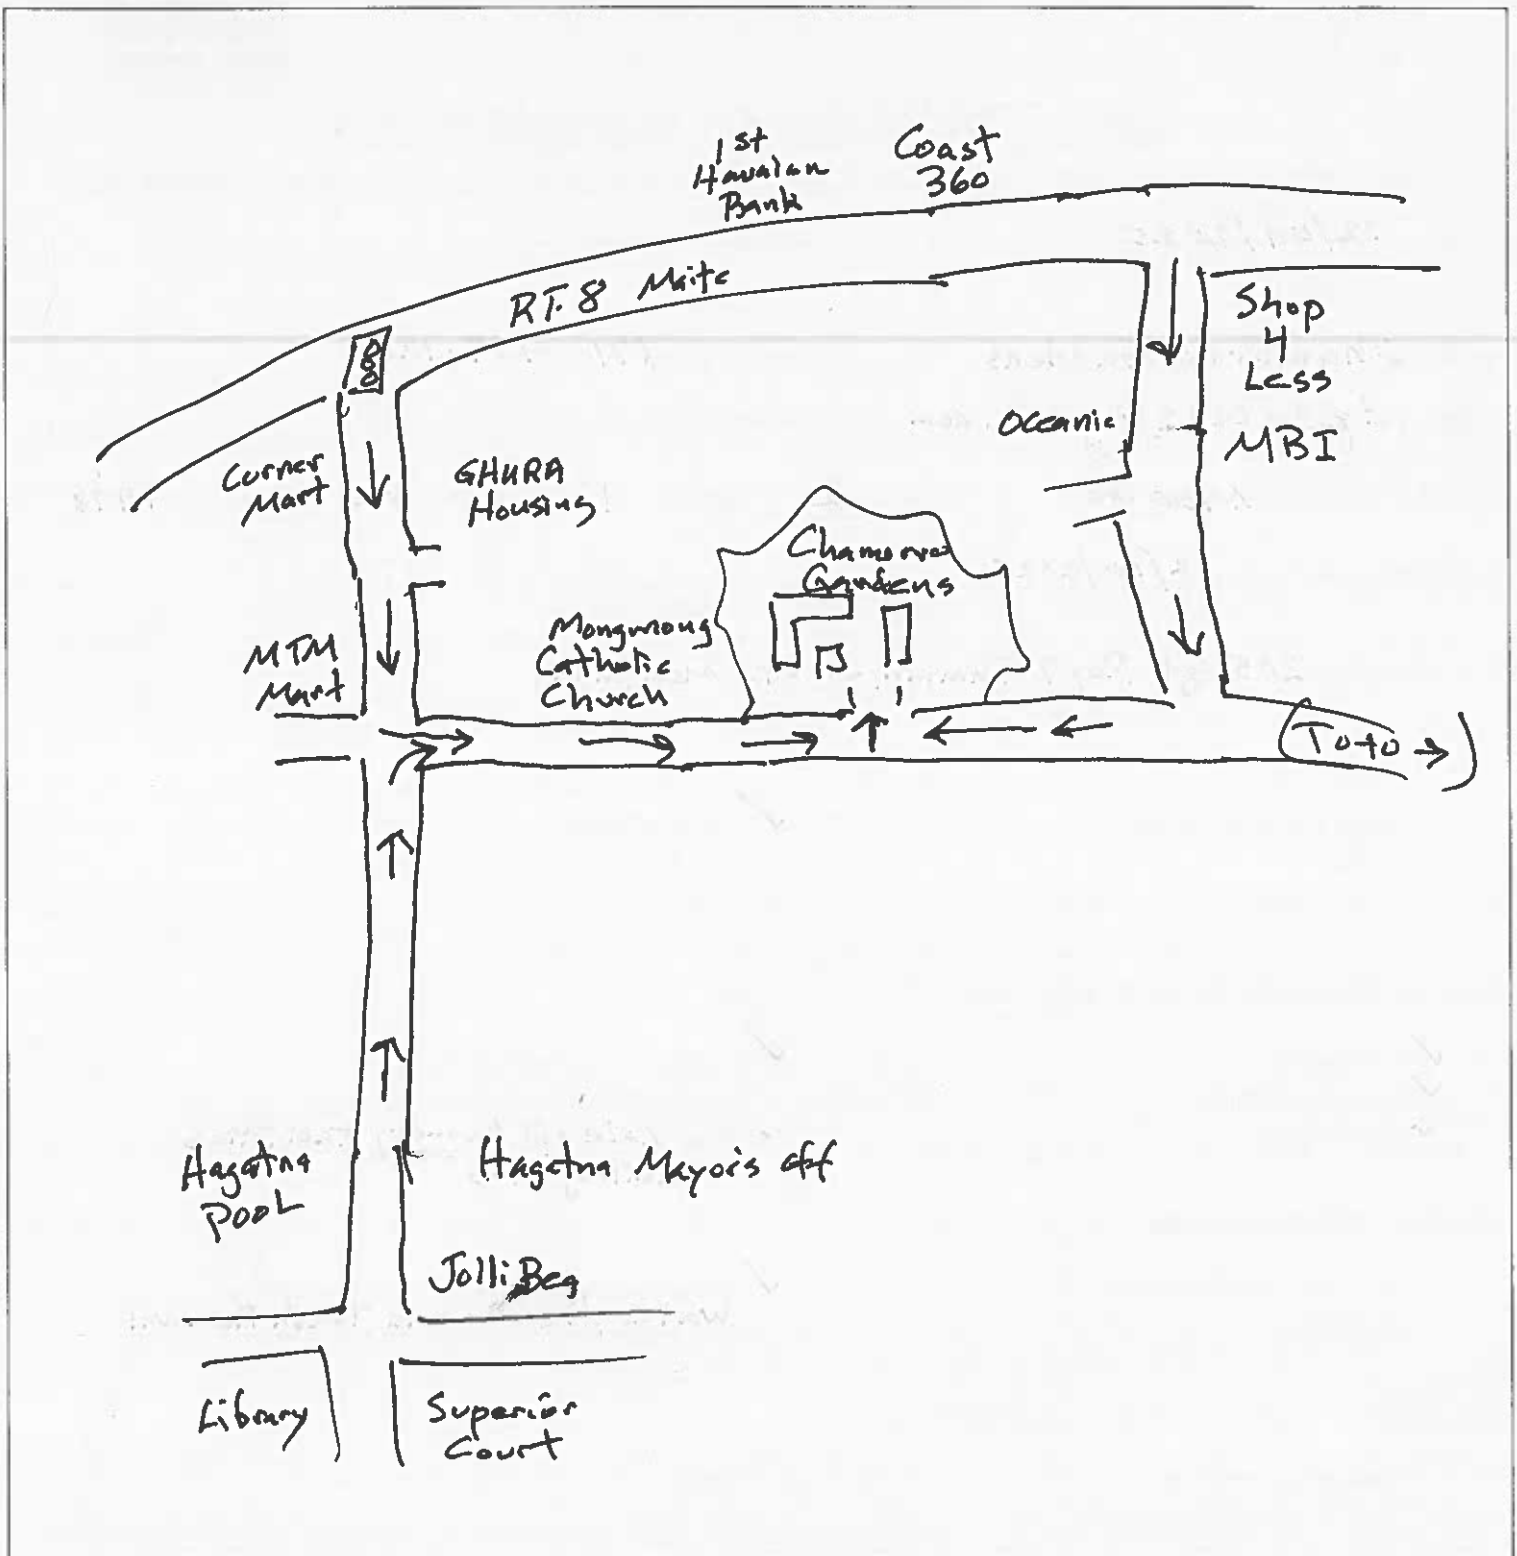 1st
Hawaian
Bank
Coast
360
RT. 8 Maite
Shop
4
Less
Oceanic
MBI
Corner
Mart
GHURA
Housing
Chamorro
Gardens
MTM
Mart
Mongmong
Catholic
Church
Toto
Hagatna
Pool
Hagatna Mayor's off
Jolli Bee
Library
Superior
Court